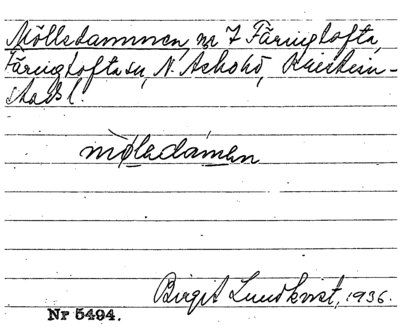 Mölledammen, nr 7 Färingtofta,
Färingtofta sn, N. Åsbo hd, Kristian-
stads l.
møledámən
Birgit Lundkvist, 1936.
Nr 5494.